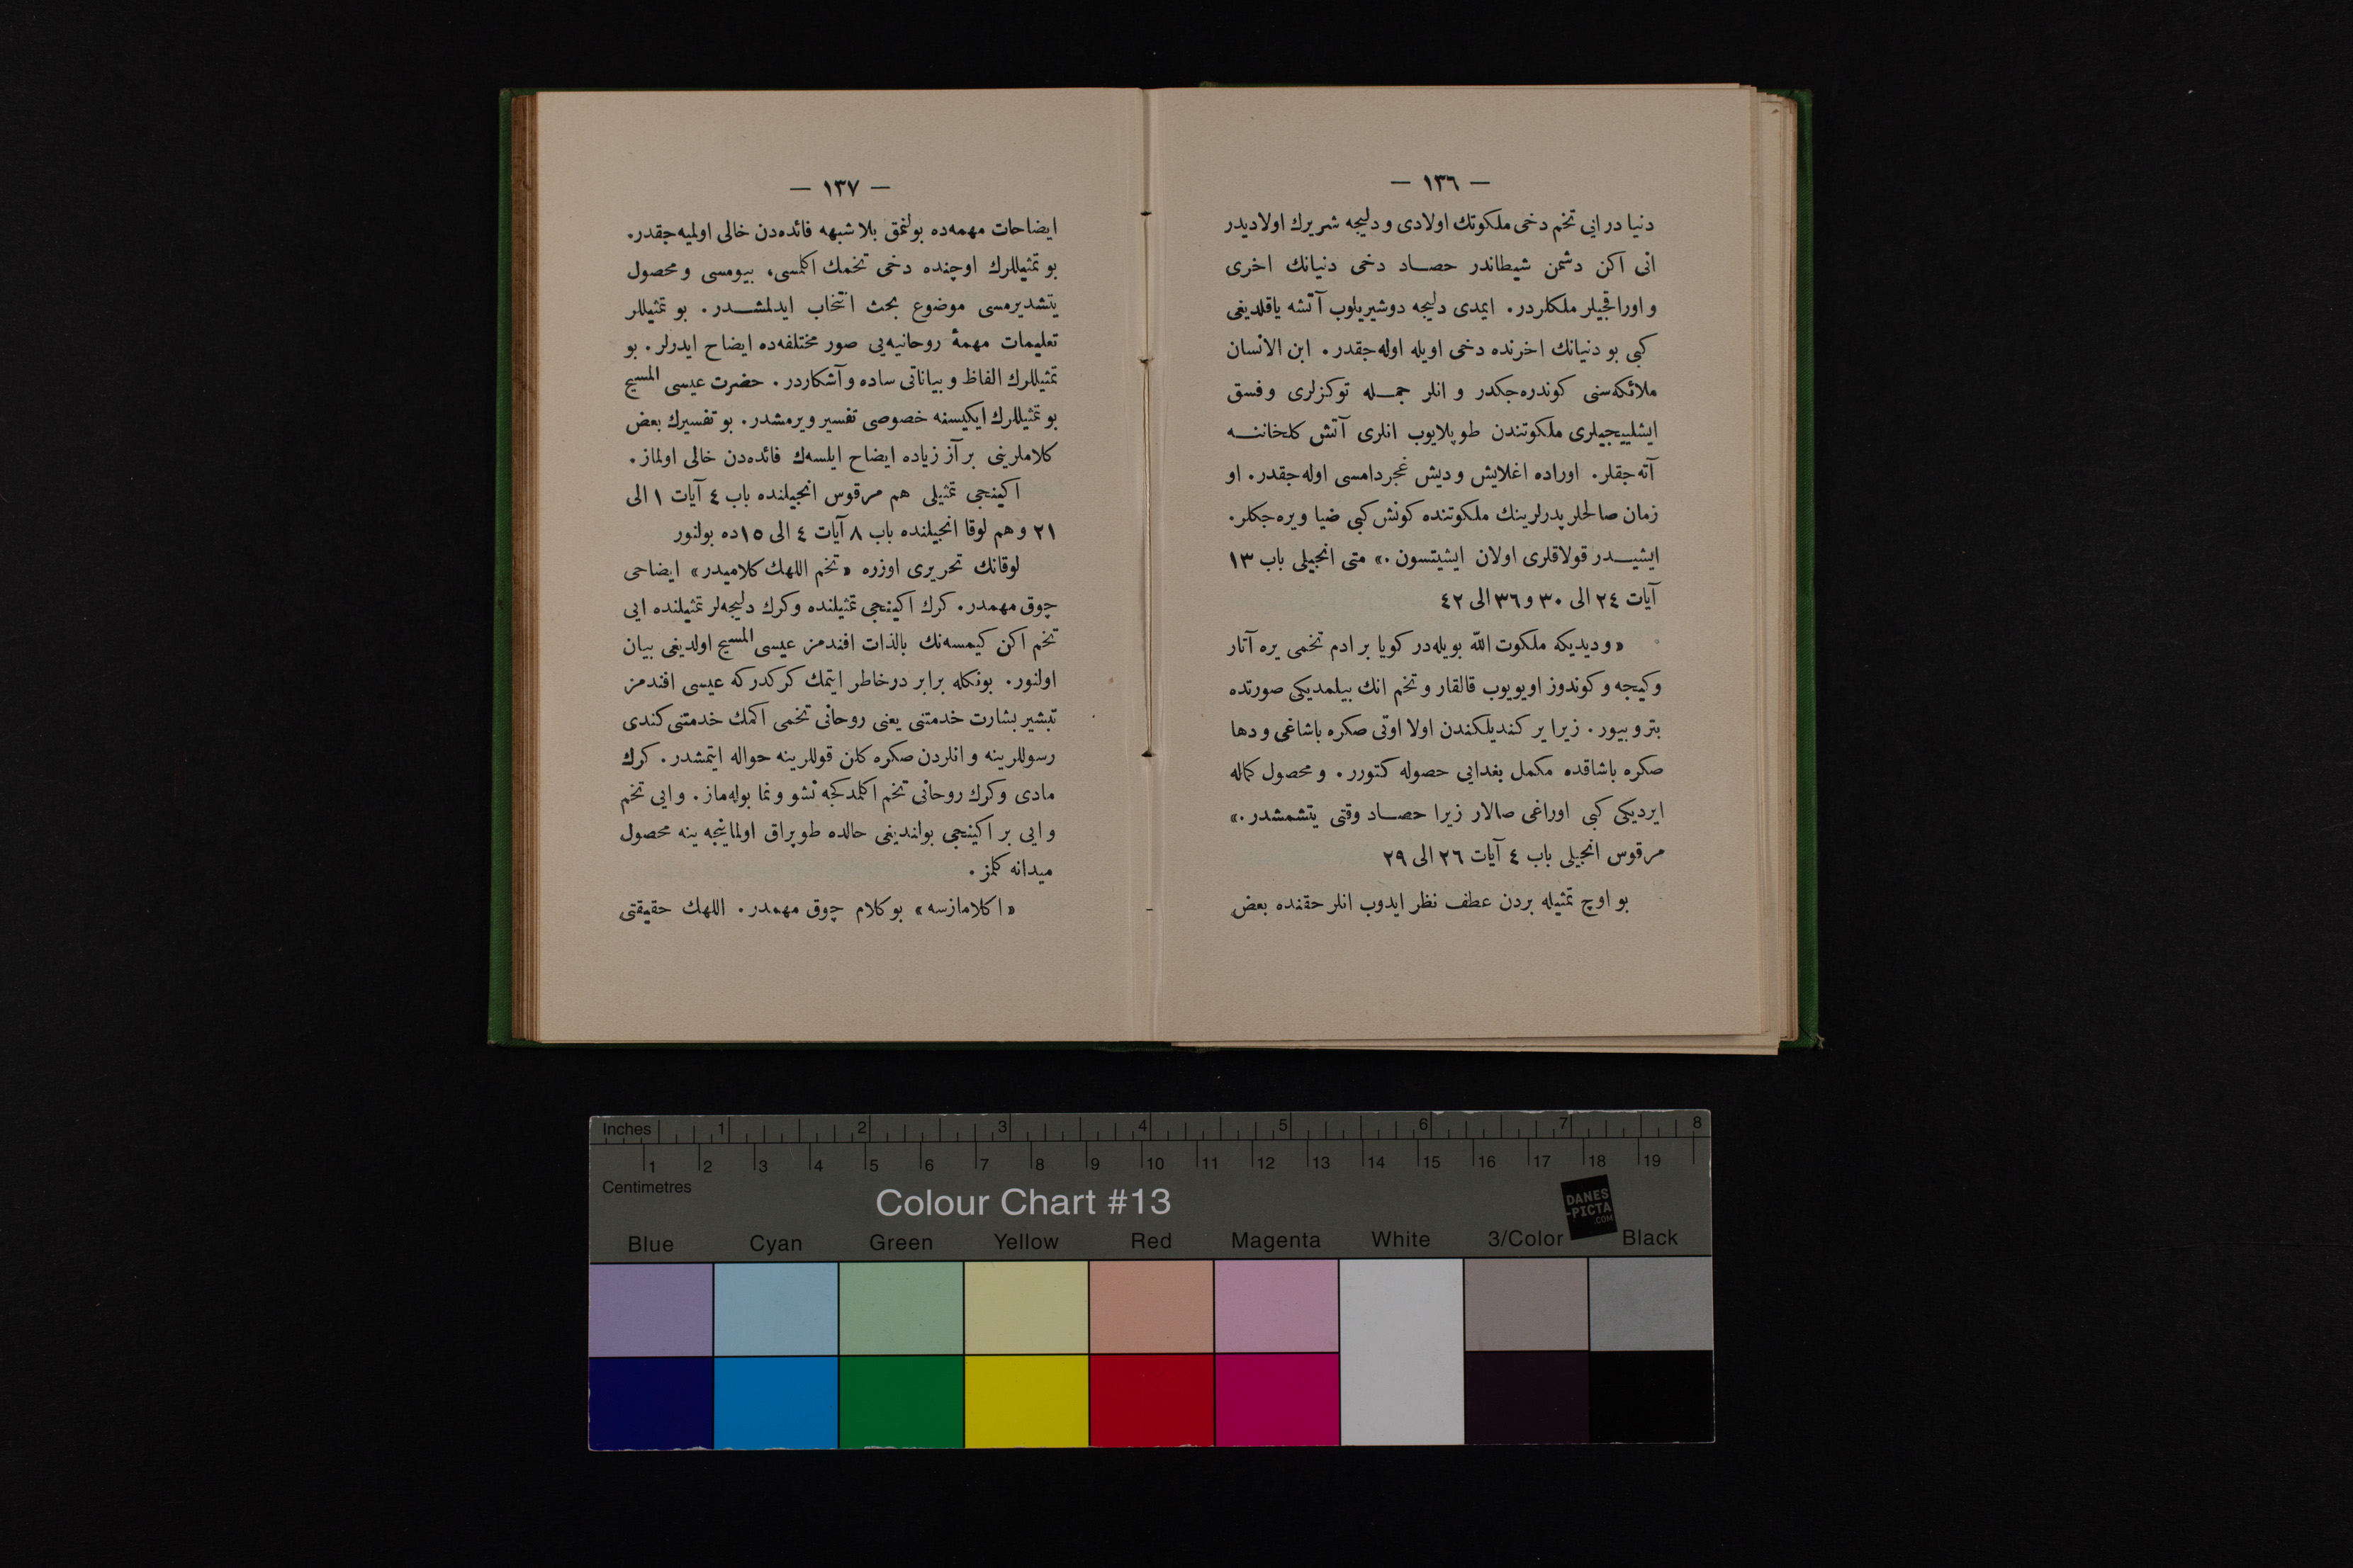 — ١٣٦ —
دنيا در ايی تخم دخی ملكوتك اولادی و دليجه شريرك اولاديدر
انی اكن دشمن شيطاندر حصاد دخی دنيانك اخری
و اوراقجيلر ملكلردر. ايمدی دليجه دوشيريلوب آتشه ياقلديغی
كبی بو دنيانك اخرنده دخی اويله اوله‌جقدر. ابن الانسان
ملائكه‌سنی كوندره‌جكدر و انلر جمله توكزلری و فسق
ايشلييجيلری ملكوتندن طوپلايوب انلری آتش كلخاننه
آته‌جقلر. اوراده اغلايش و ديش غجردامسی اوله‌جقدر. او
زمان صالحلر پدرلرينك ملكوتنده كونش كبی ضيا ويره‌جكلر.
ايشيدر قولاقلری اولان ايشيتسون.» متی انجيلی باب ١٣
آيات ٢٤ الی ٣٠ و ٣٦ الی ٤٢
«و ديديكه ملكوت الله بويله‌در كويا بر ادم تخمی يره آتار
و كيجه و كوندوز اويويوب قالقار و تخم انك بيلمديكی صورتده
بتر و بيور. زيرا ير كنديلكندن اولا اوتی صكره باشاغی و دها
صكره باشاقده مكمل بغدايی حصوله كتورر. و محصول كماله
ايرديكی كبی اوراغی صالار زيرا حصاد وقتی يتشمشدر.»
مرقوس انجيلی باب ٤ آيات ٢٦ الی ٢٩
بو اوچ تمثيله بردن عطف نظر ايدوب انلر حقنده بعض
— ١٣٧ —
ايضاحات مهمه‌ده بولنمق بلا شبهه فائده‌دن خالی اولميه‌جقدر.
بو تمثيللرك اوچنده دخی تخمك اكلمسی، بيومسی و محصول
يتشديرمسی موضوع بحث انتخاب ايدلمشدر. بو تمثيللر
تعليمات مهمهٔ روحانيه‌يی صور مختلفه‌ده ايضاح ايدرلر. بو
تمثيللرك الفاظ و بياناتی ساده و آشكاردر. حضرت عيسی المسيح
بو تمثيللرك ايكيسنه خصوصی تفسير ويرمشدر. بو تفسيرك بعض
كلاملرينی بر آز زياده ايضاح ايلسه‌ك فائده‌دن خالی اولماز.
اكينجی تمثيلی هم مرقوس انجيلنده باب ٤ آيات ١ الی
٢١ و هم لوقا انجيلنده باب ٨ آيات ٤ الی ١٥ ده بولنور
لوقانك تحريری اوزره «تخم اللهك كلاميدر» ايضاحی
چوق مهمدر. كرك اكينجی تمثيلنده و كرك دليجه‌لر تمثيلنده ايی
تخم اكن كيمسه‌نك بالذات افندمز عيسی المسيح اولديغی بيان
اولنور. بونكله برابر درخاطر ايتمك كركدركه عيسی افندمز
تبشير بشارت خدمتنی يعنی روحانی تخمی اكمك خدمتنی كندی
رسوللرينه و انلردن صكره كلن قوللرينه حواله ايتمشدر. كرك
مادی و كرك روحانی تخم اكلمدكجه نشو و نما بوله‌ماز. و ايی تخم
و ايی بر اكينجی بولنديغی حالده طوپراق اولماينجه ينه محصول
ميدانه كلمز.
«اكلامازسه» بو كلام چوق مهمدر. اللهك حقيقتی
Inches 1 2 3 4 5 6 7 8
1 2 3 4 5 6 7 8 9 10 11 12 13 14 15 16 17 18 19
Centimetres
Colour Chart #13
DANES
-PICTA
.COM
Blue Cyan Green Yellow Red Magenta White 3/Color Black